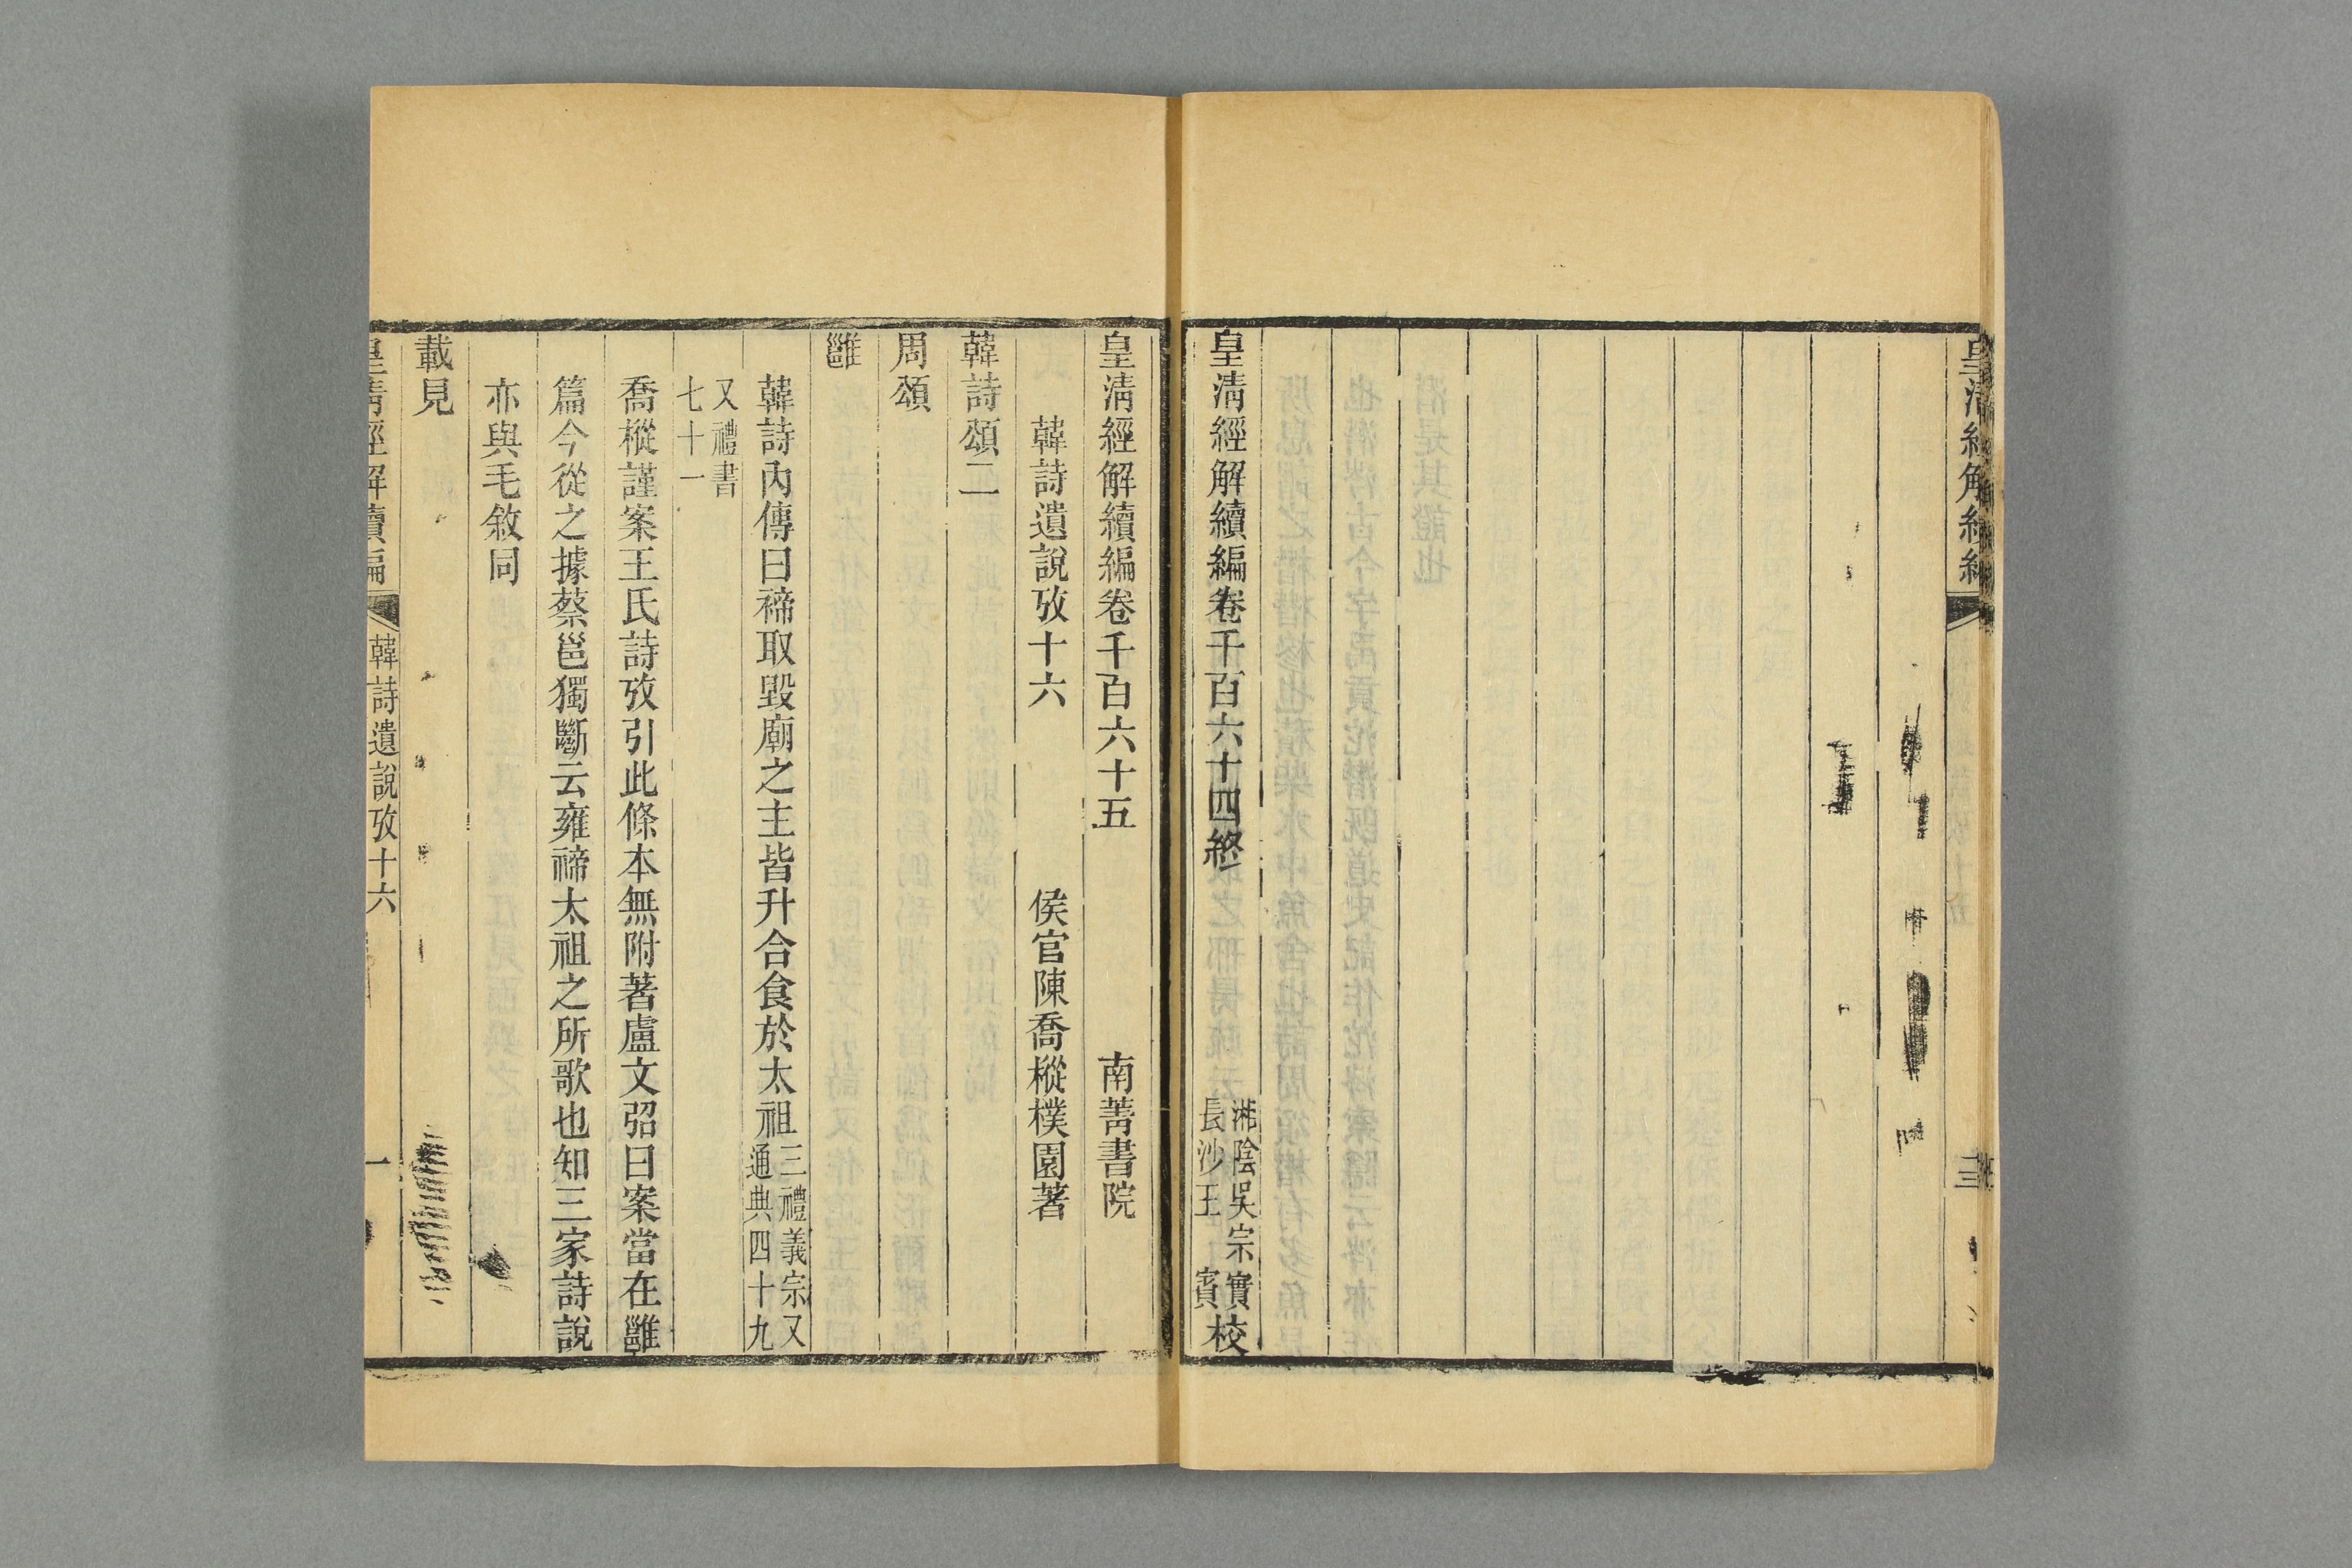 皇清經解續編卷千百六十四終
湘陰吳宗實
長沙王　賓校
皇清經解續編卷千百六十五　南菁書院
韓詩遺說攷十六　侯官陳喬樅樸園著
韓詩頌二
周頌
雝
韓詩內傳曰禘取毀廟之主皆升合食於太祖三禮義宗又通典四十九
又禮書七十一
喬樅謹案王氏詩攷引此條本無附著盧文弨曰案當在雝
篇今從之據蔡邕獨斷云雍禘太祖之所歌也知三家詩說
亦與毛敘同
載見
皇清經解續編　韓詩遺說攷十六　一